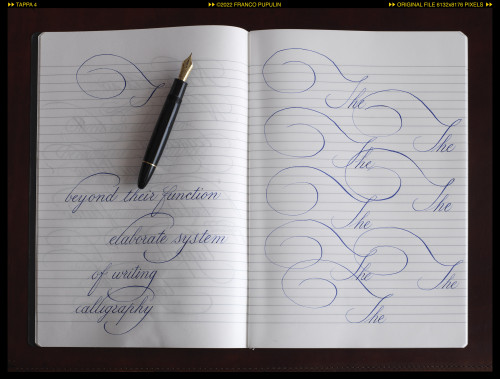 TAPPA 4
©2022 FRANCO PUPULIN
ORIGINAL FILE 6132x8176 PIXELS
T
beyond their function
elaborate system
of writing
calligraphy
The
The
The
The
The
The
The
The